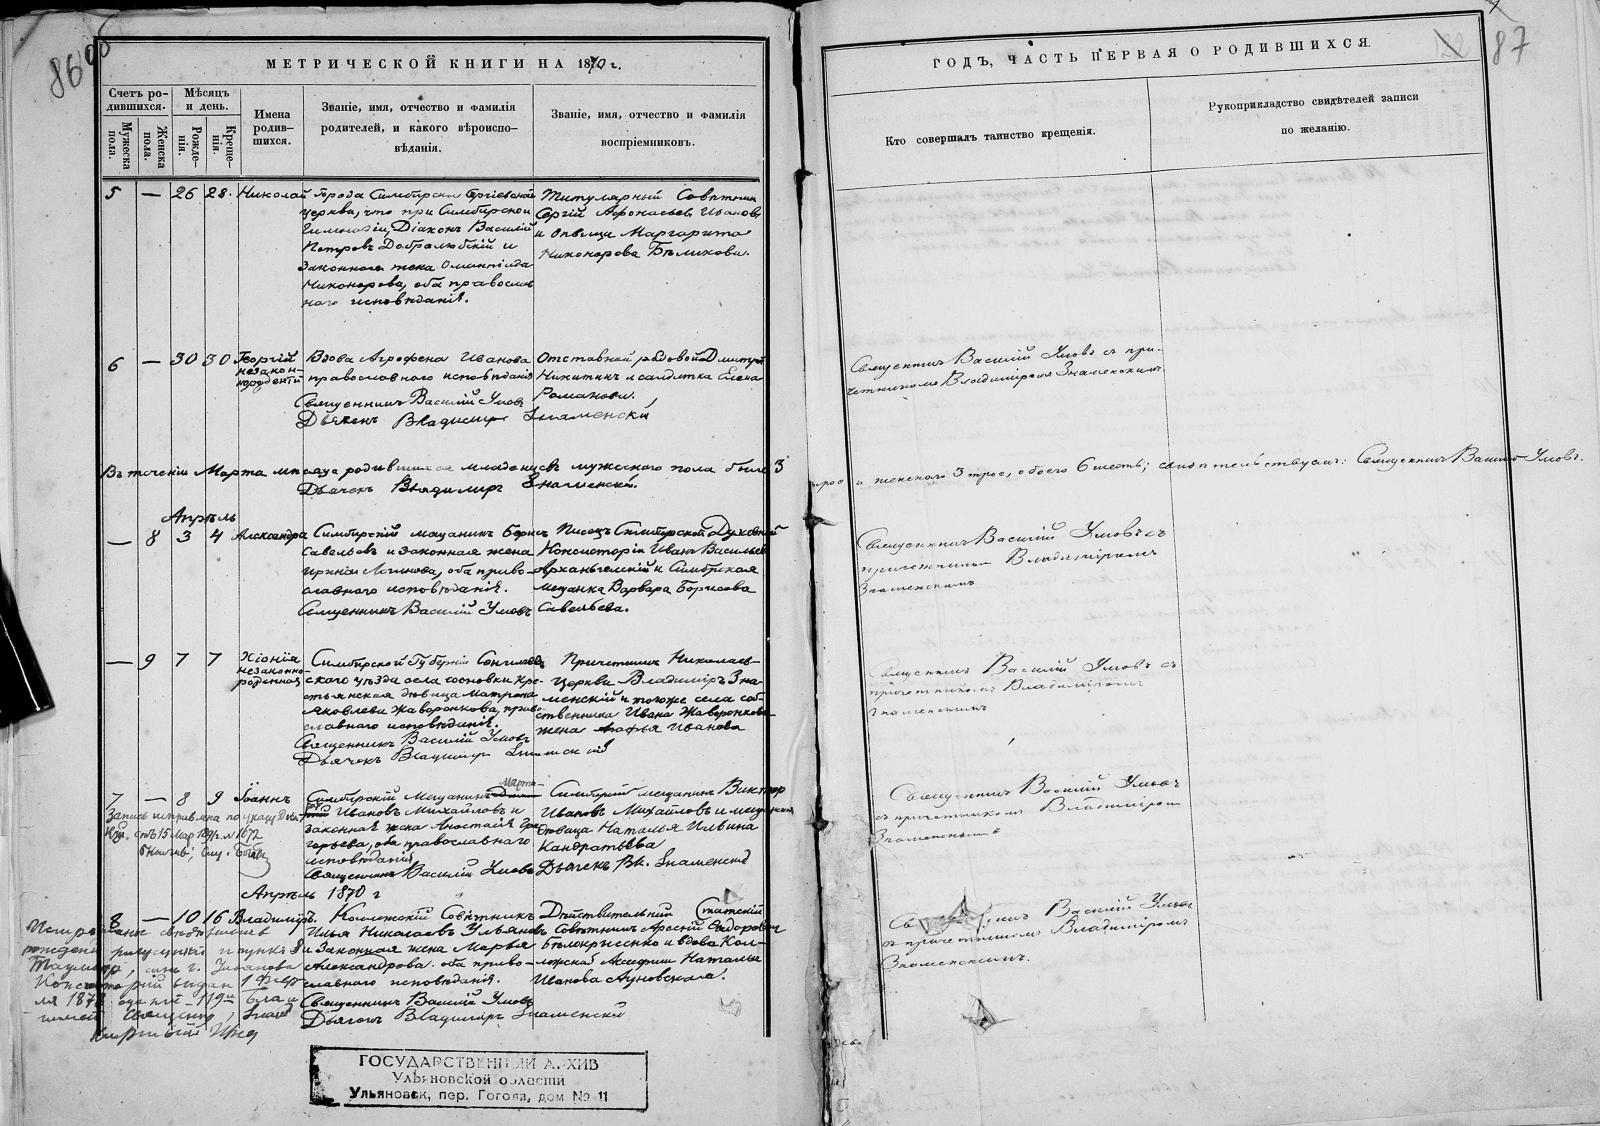 86 об
МЕТРИЧЕСКОЙ КНИГИ НА 1870 г.
Счетъ ро-
дившихся.
Мужеска
пола.
Женска
пола.
Мѣсяцъ
и день.
Рожде-
нія.
Креще-
нія.
Имена
родив-
шихся.
Званіе, имя, отчество и фамилія
родителей, и какого вѣроиспо-
вѣданія.
Званіе, имя, отчество и фамилія
воспріемниковъ.
5 — 26 28. Николай
Города Симбирска Сергіевской
церкви, что при Симбирской
гимназіи, Діаконъ Василій
Петровъ Добролюбскій и
законная жена Олимпіада
Никонорова, оба православ
наго исповѣданія.
Титулярный Совѣтник
Сергій Афонасьевъ Ивановъ
и девица Маргарита
Никонорова Бѣликова.
6 — 30 30 Георгій
незакон-
норожденный
Вдова Агрофена Иванова
православнаго исповѣданія
Священникъ Василій Умовъ
Дьячекъ Владимиръ Знаменскій
Отставной рядовой Дмитрій
Никитинъ и салдатка Елена
Романова.
Въ теченіи Марта мѣсяца родившихся младенцевъ мужескаго пола было 3
Дьячекъ Владимиръ Знаменскій.
Апрѣль
— 8 3 4 Александра
Симбирскій мещанинъ Борисъ
Савельевъ и законная жена
Ирина Логинова, оба право-
славнаго исповѣданія.
Священникъ Василій Умовъ
Писецъ Симбирской Духовной
Консисторіи Иванъ Васильевъ
Архангельскій и Симбирская
мещанка Варвара Борисова
Савельева.
— 9 7 7 Хіонія
незаконно-
рожденная
Симбирской Губерніи Сенгилеев
скаго уѣзда села Сосновки кре-
стьянская дѣвица Матрона
Яковлева Жаворонкова, право-
славнаго исповѣданія.
Священникъ Василій Умовъ
Дьячекъ Владимиръ Знаменскій
Причетникъ Николаев-
церкви Владиміръ Зна-
менскій и тогоже села соб-
ственника Ивана Жаворонкова
жена Агафья Иванова
7 — 8 9 Іоаннъ
Запись исправлена по указу
отъ 15 Мар
Симбирскій Мещанинъ
Ивановъ Михайловъ и
законная жена Анастасія Гри
горьева, оба православнаго
исповѣданія
Священникъ Василій Умовъ
Симбирскій мещанинъ Виктор
Ивановъ Михайловъ и мещанская
дѣвица Наталья Ильина
Кандратьева
Дьячекъ Вл. Знаменскій
Апрѣль 1870 г
8 — 10 16 Владиміръ.
Колежскій Совѣтникъ
Илья Николаевъ Ульяновъ
и Законная жена Марья
Александрова оба право-
славнаго исповѣданія.
Священникъ Василій Умовъ
Дьячокъ Владиміръ Знаменскій
Дѣйствительный Статскій
Совѣтникъ Арсеній Ѳедоровъ
Бѣлокрысенко и вдова Кол-
лежской Асесорши Наталья
Иванова Ауновская.
ГОСУДАРСТВЕННЫЙ АРХИВ
Ульяновской области
Ульяновск, пер. Гоголя, дом № 11
87
ГОДЪ, ЧАСТЬ ПЕРВАЯ О РОДИВШИХСЯ.
Кто совершалъ таинство крещенія.
Рукоприкладство свидѣтелей записи
по желанію.
Священникъ Василій Умовъ съ при-
четникомъ Владиміромъ Знаменскимъ
трое и женскаго 3 трое, обоего 6 шесть; Священникъ Василій Умовъ.
Священникъ Василій Умовъ съ
причетникомъ Владиміромъ
Знаменскимъ
Священникъ Василій Умовъ съ
причетникомъ Владиміромъ
Знаменскимъ
Священникъ Василій Умовъ
съ причетникомъ Владиміромъ
Знаменскимъ
Василій Умовъ
съ причетникомъ Владиміромъ
Знаменскимъ.